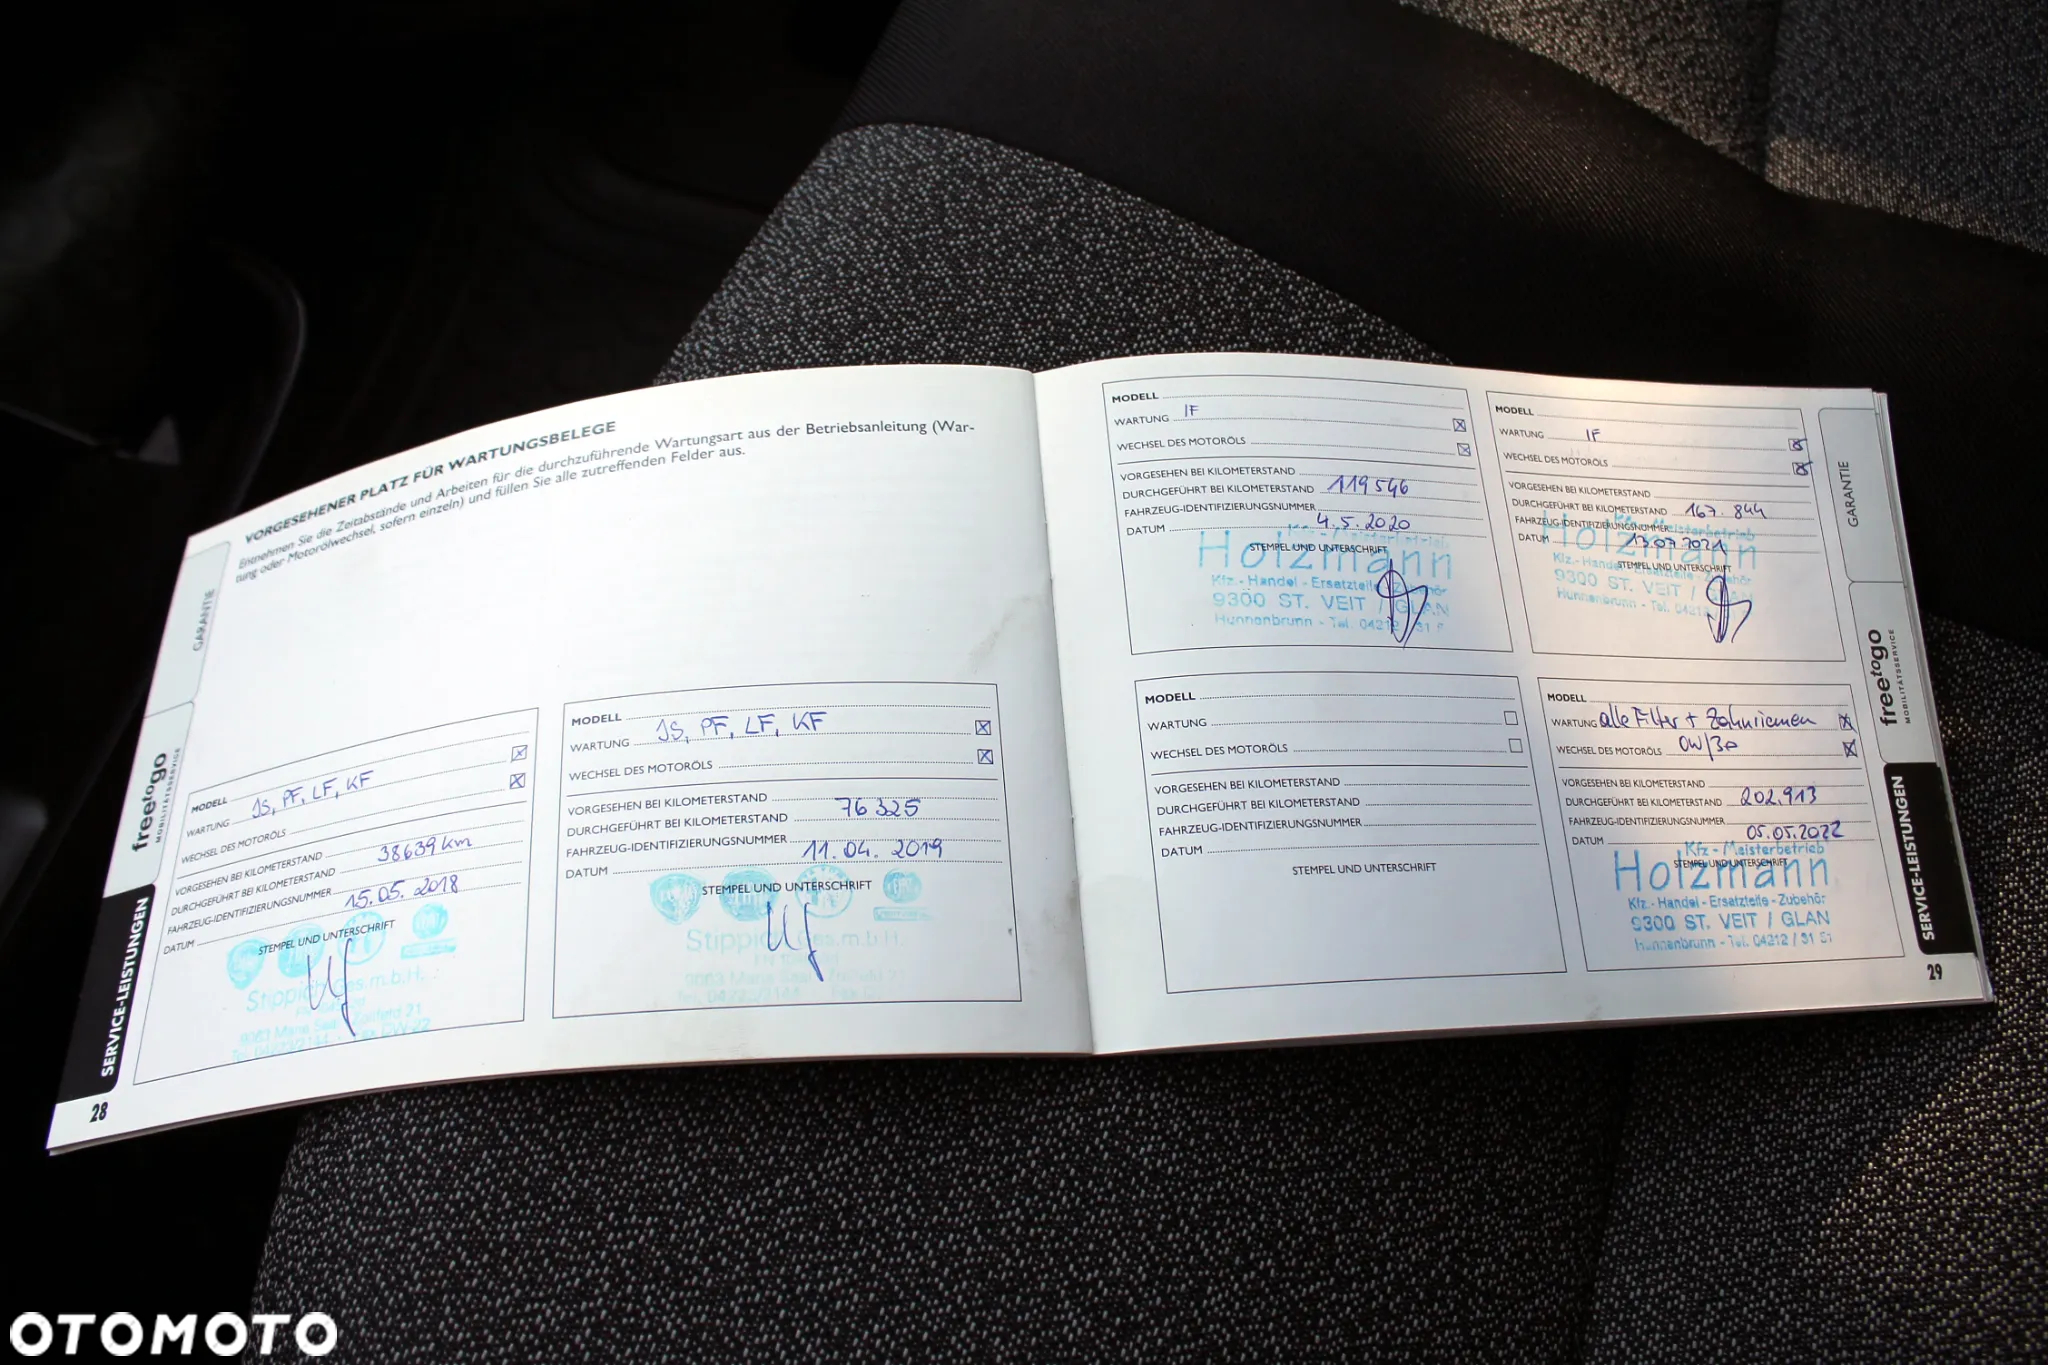 VORGESEHENER PLATZ FÜR WARTUNGSBELEGE
Entnehmen Sie die Zeitabstände und Arbeiten für die durchzuführende Wartungsart aus der Betriebsanleitung (War-
tung oder Motorölwechsel, sofern einzeln) und füllen Sie alle zutreffenden Felder aus.
GARANTIE
freetogo
MOBILITÄTSSERVICE
SERVICE-LEISTUNGEN
28
MODELL
WARTUNG JS, PF, LF, KF
WECHSEL DES MOTORÖLS
VORGESEHEN BEI KILOMETERSTAND
DURCHGEFÜHRT BEI KILOMETERSTAND 38639 km
FAHRZEUG-IDENTIFIZIERUNGSNUMMER
DATUM 15.05.2018
STEMPEL UND UNTERSCHRIFT
Stippich Ges.m.b.H.
MODELL
WARTUNG JS, PF, LF, KF
WECHSEL DES MOTORÖLS
VORGESEHEN BEI KILOMETERSTAND
DURCHGEFÜHRT BEI KILOMETERSTAND 76325
FAHRZEUG-IDENTIFIZIERUNGSNUMMER
DATUM 11.04.2019
STEMPEL UND UNTERSCHRIFT
Stippich Ges.m.b.H.
MODELL
WARTUNG IF
WECHSEL DES MOTORÖLS
VORGESEHEN BEI KILOMETERSTAND
DURCHGEFÜHRT BEI KILOMETERSTAND 119546
FAHRZEUG-IDENTIFIZIERUNGSNUMMER
DATUM 4.5.2020
STEMPEL UND UNTERSCHRIFT
Holzmann
Kfz.-Handel-Ersatzteile-Zubehör
9300 ST. VEIT / GLAN
Hunnenbrunn - Tel. 04212 / 31 5
MODELL
WARTUNG IF
WECHSEL DES MOTORÖLS
VORGESEHEN BEI KILOMETERSTAND
DURCHGEFÜHRT BEI KILOMETERSTAND 167.844
FAHRZEUG-IDENTIFIZIERUNGSNUMMER
DATUM 13.07.2021
STEMPEL UND UNTERSCHRIFT
Kfz-Meisterbetrieb
Holzmann
Kfz.-Handel-Ersatzteile-Zubehör
9300 ST. VEIT / GLAN
Hunnenbrunn - Tel. 04212
MODELL
WARTUNG
WECHSEL DES MOTORÖLS
VORGESEHEN BEI KILOMETERSTAND
DURCHGEFÜHRT BEI KILOMETERSTAND
FAHRZEUG-IDENTIFIZIERUNGSNUMMER
DATUM
STEMPEL UND UNTERSCHRIFT
MODELL
WARTUNG alle Filter + Zahnriemen
WECHSEL DES MOTORÖLS 0W/30
VORGESEHEN BEI KILOMETERSTAND
DURCHGEFÜHRT BEI KILOMETERSTAND 202.913
FAHRZEUG-IDENTIFIZIERUNGSNUMMER
DATUM 05.05.2022
STEMPEL UND UNTERSCHRIFT
Kfz-Meisterbetrieb
Holzmann
Kfz.-Handel-Ersatzteile-Zubehör
9300 ST. VEIT / GLAN
Hunnenbrunn - Tel. 04212 / 31 51
GARANTIE
freetogo
MOBILITÄTSSERVICE
SERVICE-LEISTUNGEN
29
OTOMOTO